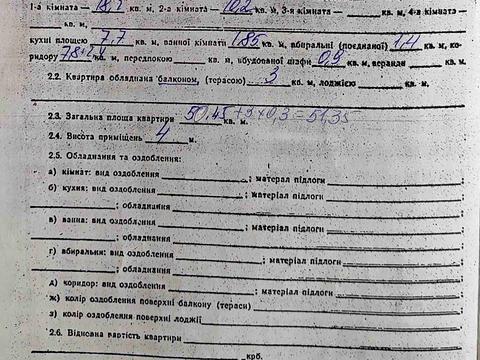 1-а кімната — 18,2 кв. м, 2-а кімната — 10,2 кв. м, 3-я кімната — кв. м, 4-а кімната —
кв. м,
кухні площею 7,7 кв. м, ванної кімнати 1,85 кв. м, вбиральні (поєднаної) 1,4 кв. м, ко-
ридору кв. м, передпокою кв. м, вбудованої шафи 0,9 кв. м, веранди кв. м.
2.2. Квартира обладнана балконом, (терасою) 3 кв. м, лоджією кв. м.
2.3. Загальна площа квартири 50.45 + 3 × 0,3 = 51,35 кв. м.
2.4. Висота приміщень 4 м.
2.5. Обладнання та оздоблення:
а) кімнат: вид оздоблення ; матеріал підлоги ;
б) кухня: вид оздоблення ; матеріал підлоги
; обладнання ;
в) ванна: вид оздоблення ; матеріал підлоги
; обладнання ;
г) вбиральня: вид оздоблення ; матеріал підлоги
; обладнання ;
д) коридор: вид оздоблення ; матеріал підлоги ;
ж) колір оздоблення поверхні балкону (тераси) ;
з) колір оздоблення поверхні лоджії ;
2.6. Відновна вартість квартири
крб.